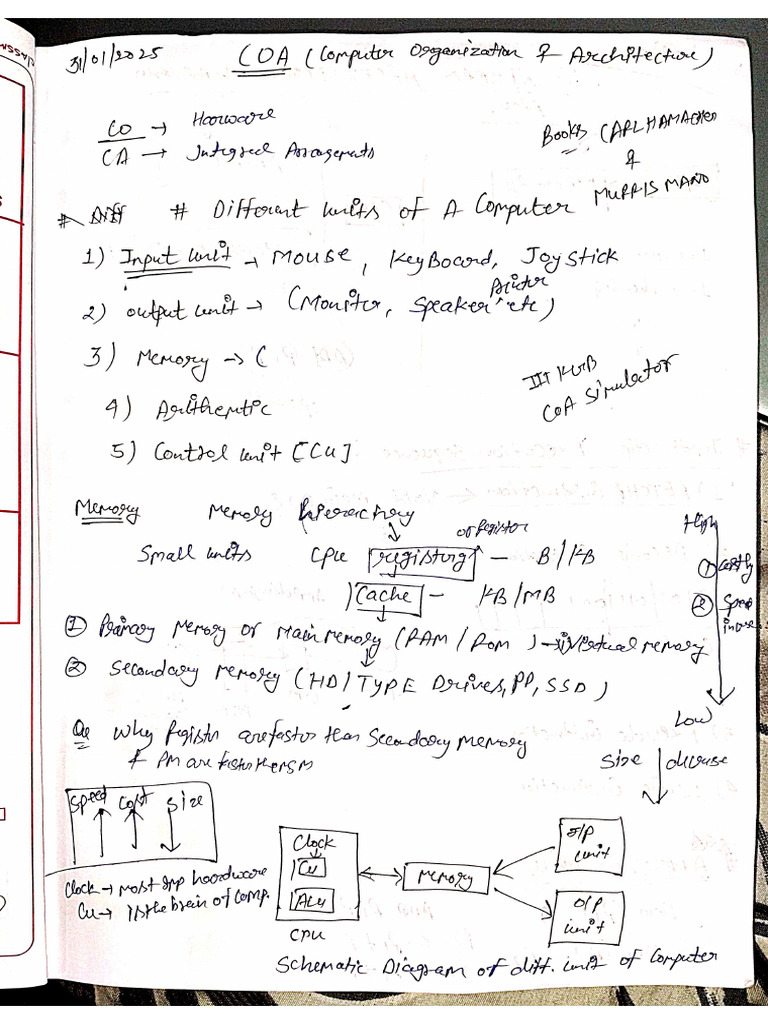 31/01/2025 COA (Computer Organization & Architecture)
CO → Hardware
CA → Integral Arrangements
Books CARL HAMACHER
&
MURRIS MANO
# Diff # Different units of A Computer
1) Input unit → Mouse, KeyBoard, Joy Stick
Printer
2) output unit → (Monitor, Speaker, etc)
3) Memory → (
4) Arithemtic
III KGB
COA Simulator
5) Control unit [CU]
Memory Memory Hierarchy
or Register
Small units CPU registory — B/KB
Cache — KB/MB
High
① Costly
② Speed
① Primary Memory or Main memory (RAM/Rom) → Virtual memory
② Secondary memory (HD/TYPE Drives, PP, SSD)
Low
Que Why Registr are faster than Secondary memory
& PM are faster then SM
Size decrease
Speed Cost Size
Clock → most Imp hoordware
CU → Is the brain of Comp.
Clock
CU
ALU
CPU
Memory
I/P
unit
O/P
unit
Schematic Diagram of diff. unit of Computer